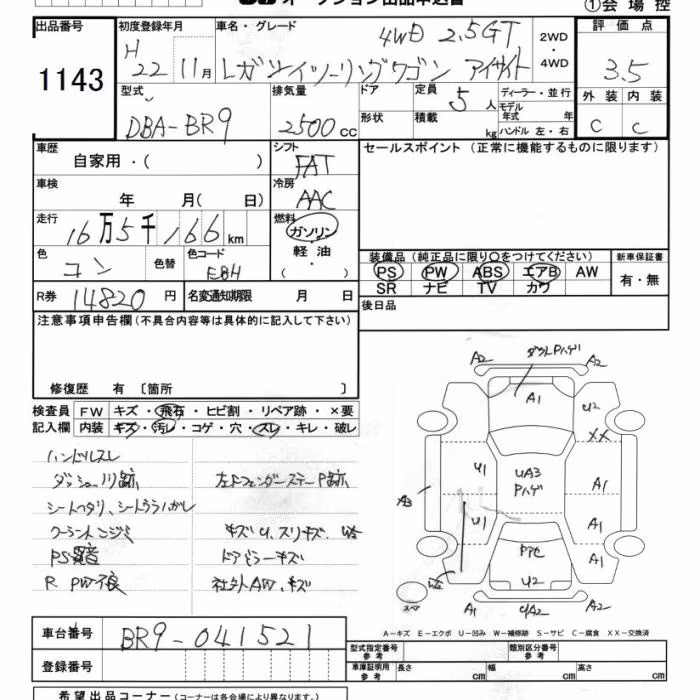 オークション出品申込書
①会場控
出品番号 1143
初度登録年月 H 22 11月
車名・グレード 4WD 2.5GT
レガシィツーリングワゴン アイサイト
2WD・4WD
評価点 3.5
外装 内装
C C
型式 DBA-BR9
排気量 2500cc
ドア
形状
定員 5人
積載 kg
ディーラー・並行
モデル年式 年
ハンドル 左・右
車歴 自家用・( )
シフト FAT
セールスポイント(正常に機能するものに限ります)
車検 年 月( 日)
冷房 AAC
走行 16万5千166km
燃料 ガソリン・軽油・( )
色 コン
色替
色コード E8H
装備品(純正品に限り○をつけてください)
PS PW ABS エアB AW
SR ナビ TV カワ
新車保証書 有・無
R券 14820円
名変通知期限 月 日
後日品
注意事項申告欄(不具合内容等は具体的に記入して下さい)
修復歴 有〔箇所 〕
検査員記入欄
FW キズ・飛石・ヒビ割・リペア跡・×要
内装 キズ・汚レ・コゲ・穴・スレ・キレ・破レ
ハンドルスレ
ダッシュ川跡 左Fフェンダーステー P跡
シートヘタリ、シートウラハガレ
クーラントニジミ キズ U、スリキズ
PS異音 ドアミラーキズ
R PW不良 社外AW、キズ
A2 ダクトPハゲ A2
A1
U2
XX
U1
UA3
Pハゲ
A1
A3
U1
A1
A1
U2
スペア
A1
A2
A-キズ E-エクボ U-凹み W-補修跡 S-サビ C-腐食 XX-交換済
車台番号 BR9-041521
登録番号
型式指定番号 参考
類別区分番号 参考
車庫証明用 参考 長さ cm 幅 cm 高さ cm
希望出品コーナー(コーナーは各会場により異なります。)